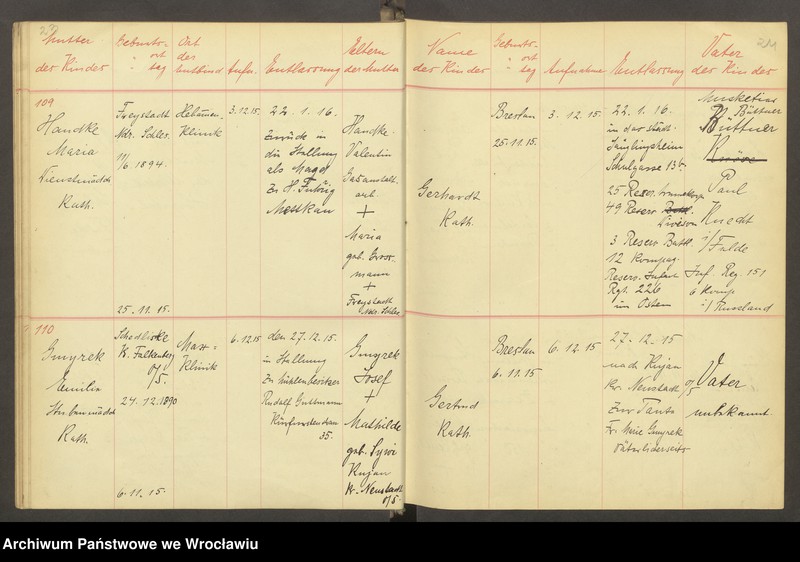 Mutter
der Kinder
Geburts-
ort
tag
Ort
der
Entbind.
Aufn.
Entlassung
Eltern
der Mutter
Name
der Kinder
Geburts-
ort
tag
Aufnahme
Entlassung
Vater
der Kinder
109
Handke
Maria
Dienstmädch
Kath.
Freystadt
Ndr. Schles.
1894.
25.11.15.
Hebammen
Klinik
3.12.15.
22. 1. 16.
Zurück in
die Stellung
als Magd
Zu H.
Mettkau
Handke
Valentin
Gasanstalt.
arb
+
Maria
geb. Gross-
mann
+
Freystadt
Ndr. Schles.
Gerhardt
Kath.
Breslau
25.11.15.
3. 12. 15.
22. 1. 16.
in das Städt.
Säuglingsheim
Schulgasse
25 Reserv.
49 Reserv.
Division
3 Reserv Batl.
12 Kompag.
Reserv. Infant
Rgt. 226
im Osten
Musketier
P. Büttner
Büttner
Paul
Knecht
Fulde
Inf Reg 151
6 Komp
Russland
110
Gmyrek
Emilie
Stubenmädch
Kath.
Schedliske
Kr. Falkenberg
O/S.
24.12.1890
6.11.15.
Max=
Klinik
6.12.15
den 27.12.15.
in Stellung
Zu Mühlenbesitzer
Rudolf Guttmann
Kürfürstenstr.
35.
Gmyrek
Josef
+
Mathilde
geb.
Kujau
Kr. Neustadt
O/S
Gertrud
Kath.
Breslau
6.11.15
6. 12. 15
27-12-15
nach Kujau
Kr. Neustadt O/S
Zur Tante
Fr. Marie Gmyrek
Vater
unbekannt.
Archiwum Państwowe we Wrocławiu